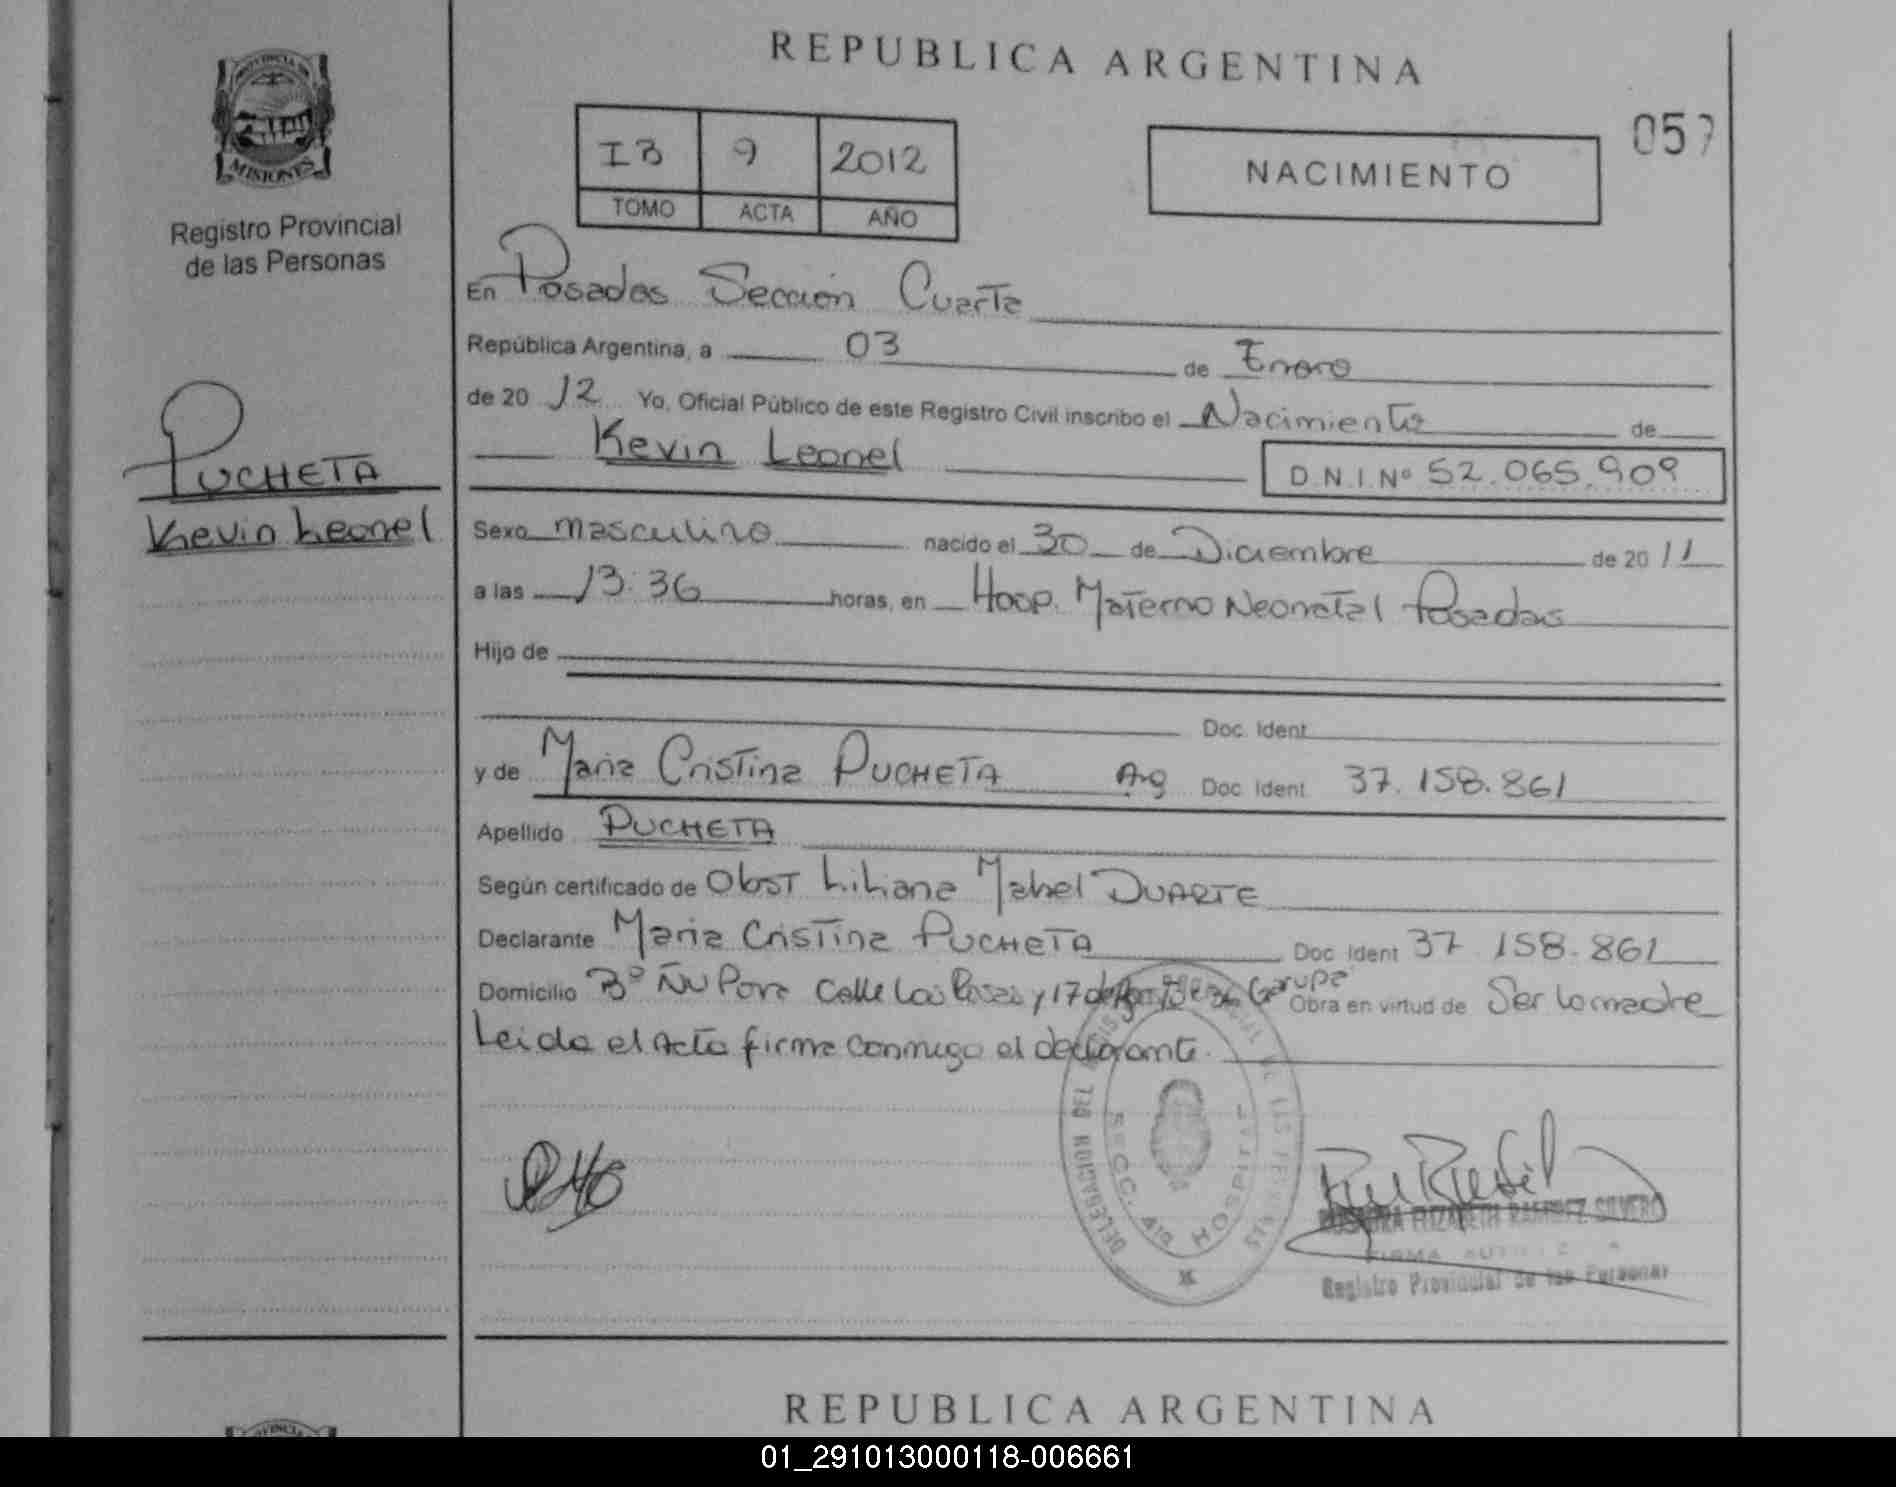 REPUBLICA ARGENTINA
057
PROVINCIA DE
MISIONES
Registro Provincial
de las Personas
IB 9 2012
TOMO ACTA AÑO
NACIMIENTO
En Posadas Sección Cuarta
República Argentina, a 03 de Enero
de 20 12 Yo, Oficial Público de este Registro Civil inscribo el Nacimiento de
Kevin Leonel D.N.I.Nº 52.065.909
PUCHETA
Kevin Leonel
Sexo masculino nacido el 30 de Diciembre de 20 11
a las 13:36 horas, en Hosp. Materno Neonatal Posadas
Hijo de
Doc. Ident
y de Maria Cristina PUCHETA Ag Doc. Ident 37.158.861
Apellido PUCHETA
Según certificado de Obst Liliana Mabel DUARTE
Declarante Maria Cristina PUCHETA Doc. Ident 37 158.861
Domicilio Bº Ñu Pora Calle Las Rosas y 17 de Garupa Obra en virtud de Ser la madre
Leida el Acta firma conmigo el declarante.
DELEGACION DEL REGISTRO PROVINCIAL DE LAS PERSONAS
SECC. 4ta HOSPITAL
ELIZABETH RAMIREZ SILVERO
FIRMA
Registro Provincial de las Personas
REPUBLICA ARGENTINA
01_291013000118-006661